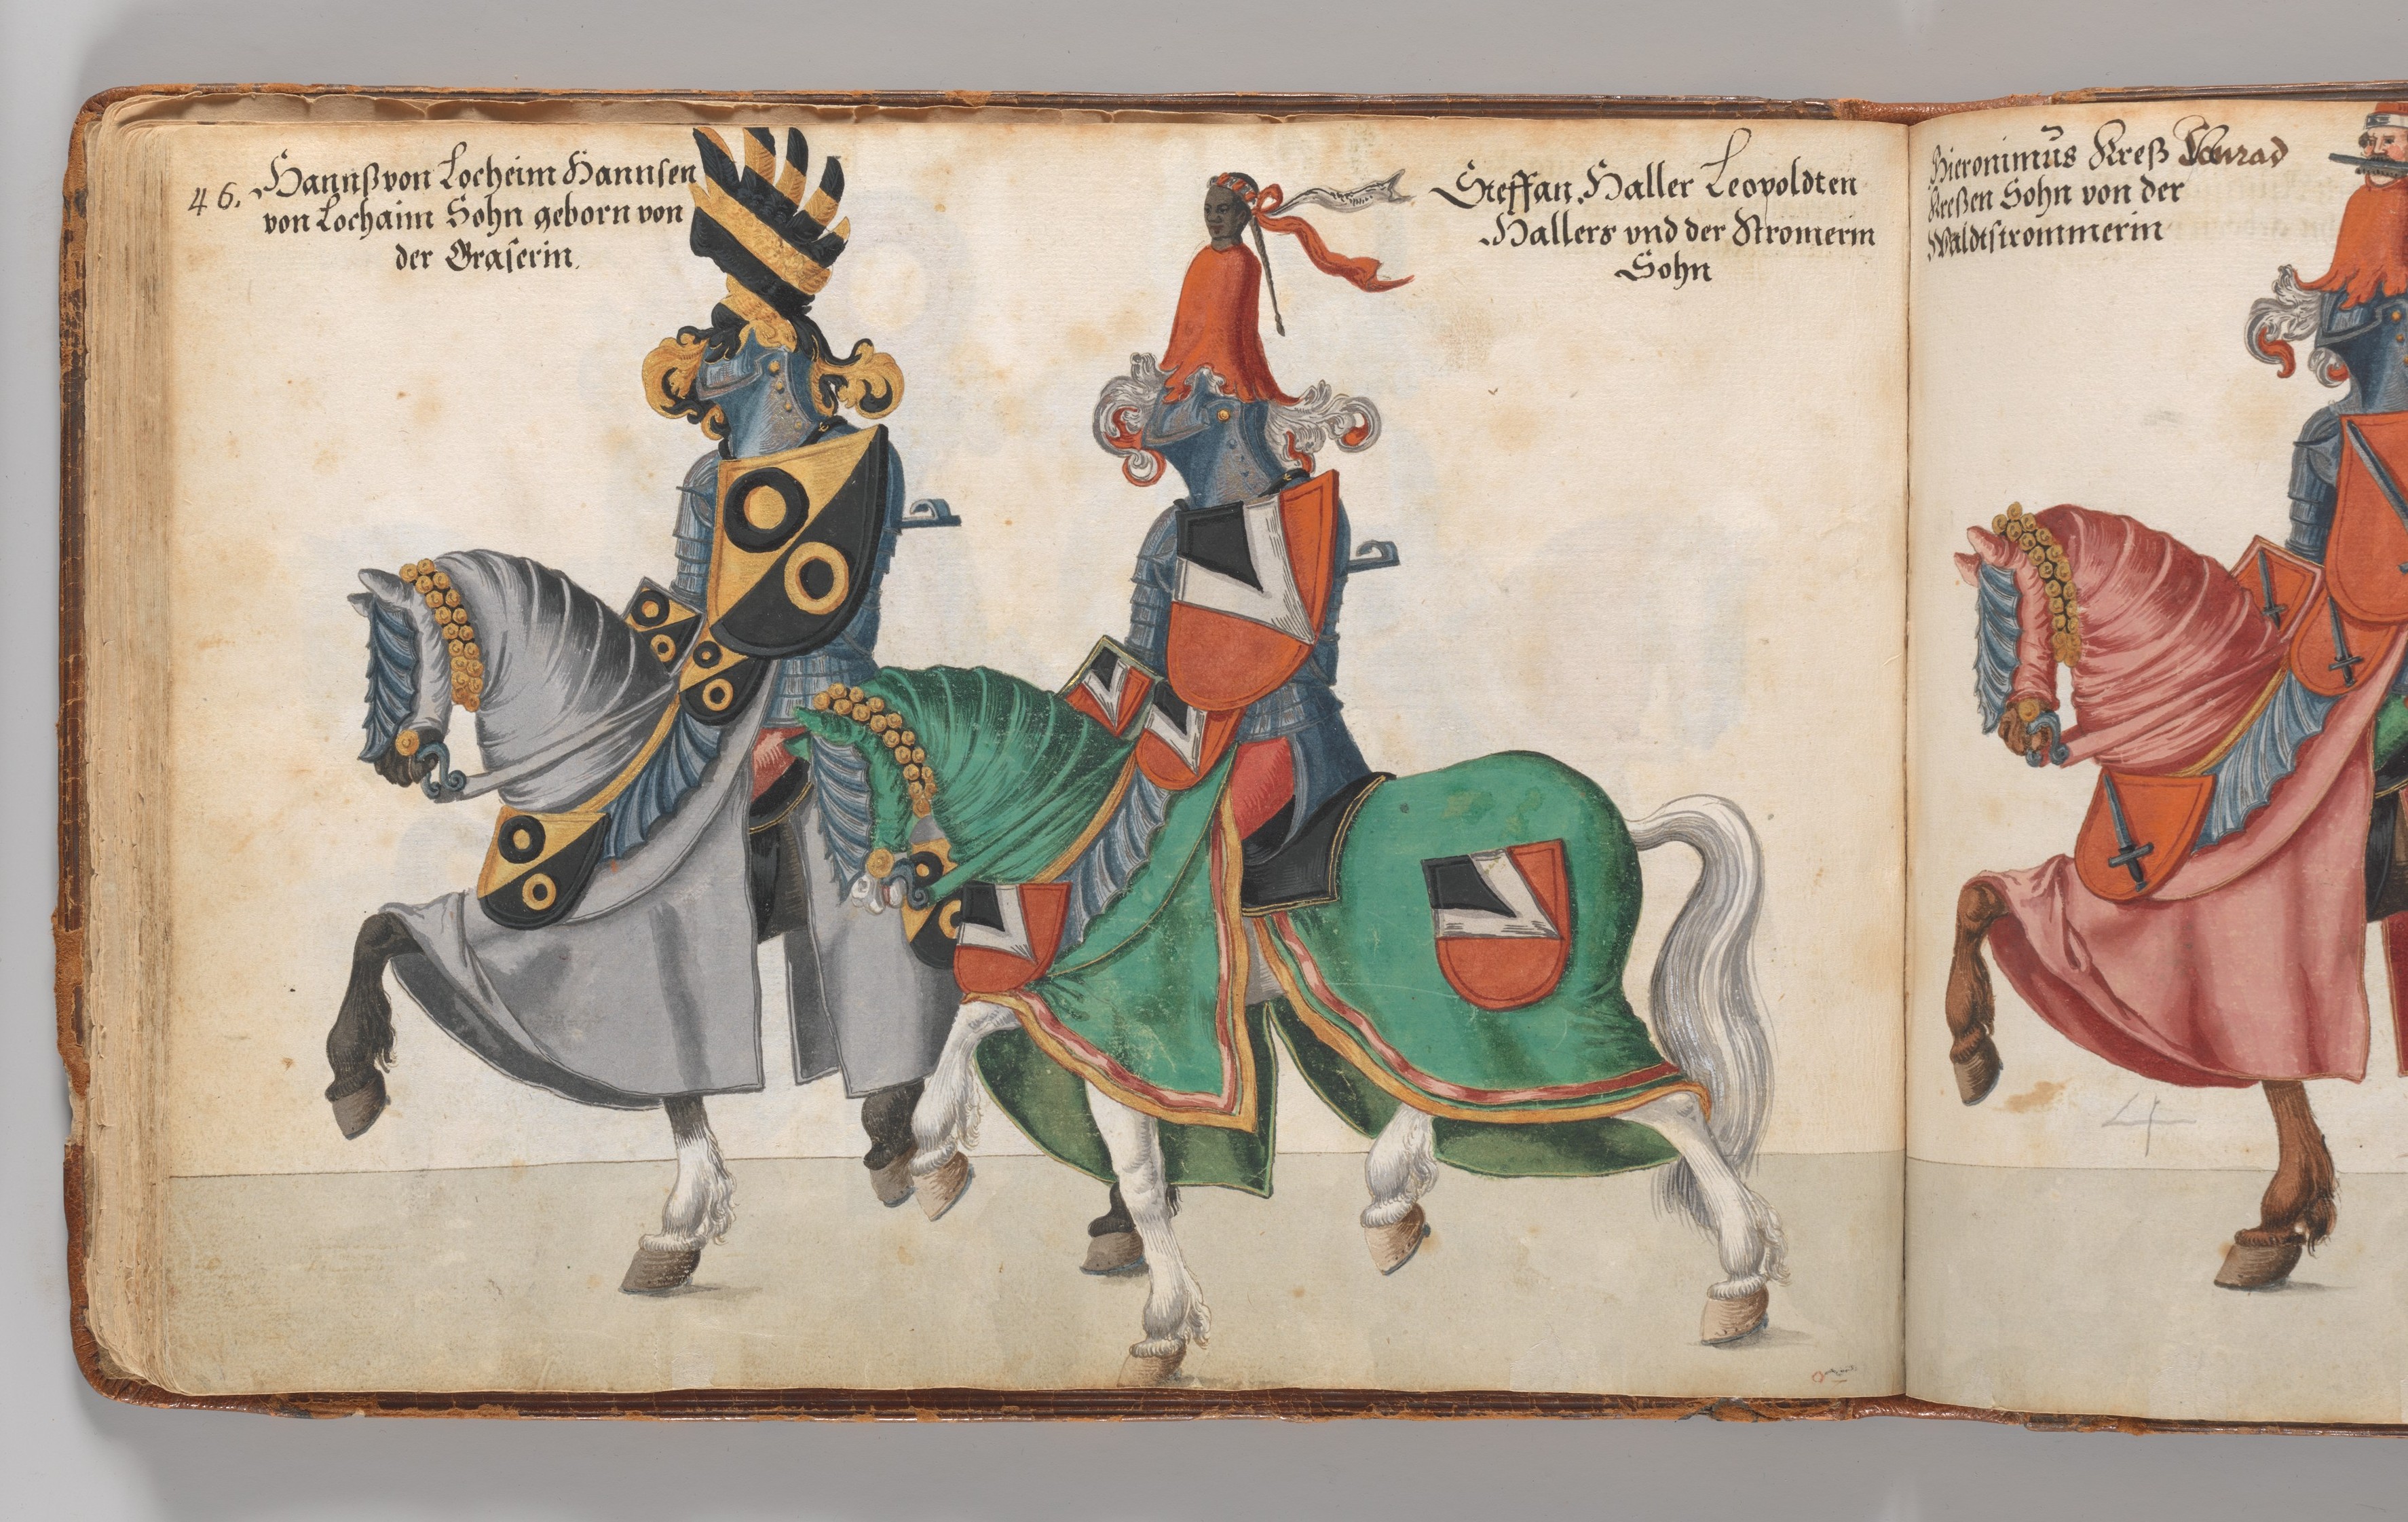 46. Hannß von Locheim Hannsen
von Lochaim Sohn geborn von
der Graserin.
Steffan Haller Leopoldten
Hallers vnd der Stromerin
Sohn
Hieronimus Kreß Conrad
Kreßen Sohn von der
Waldtstrommerin
4